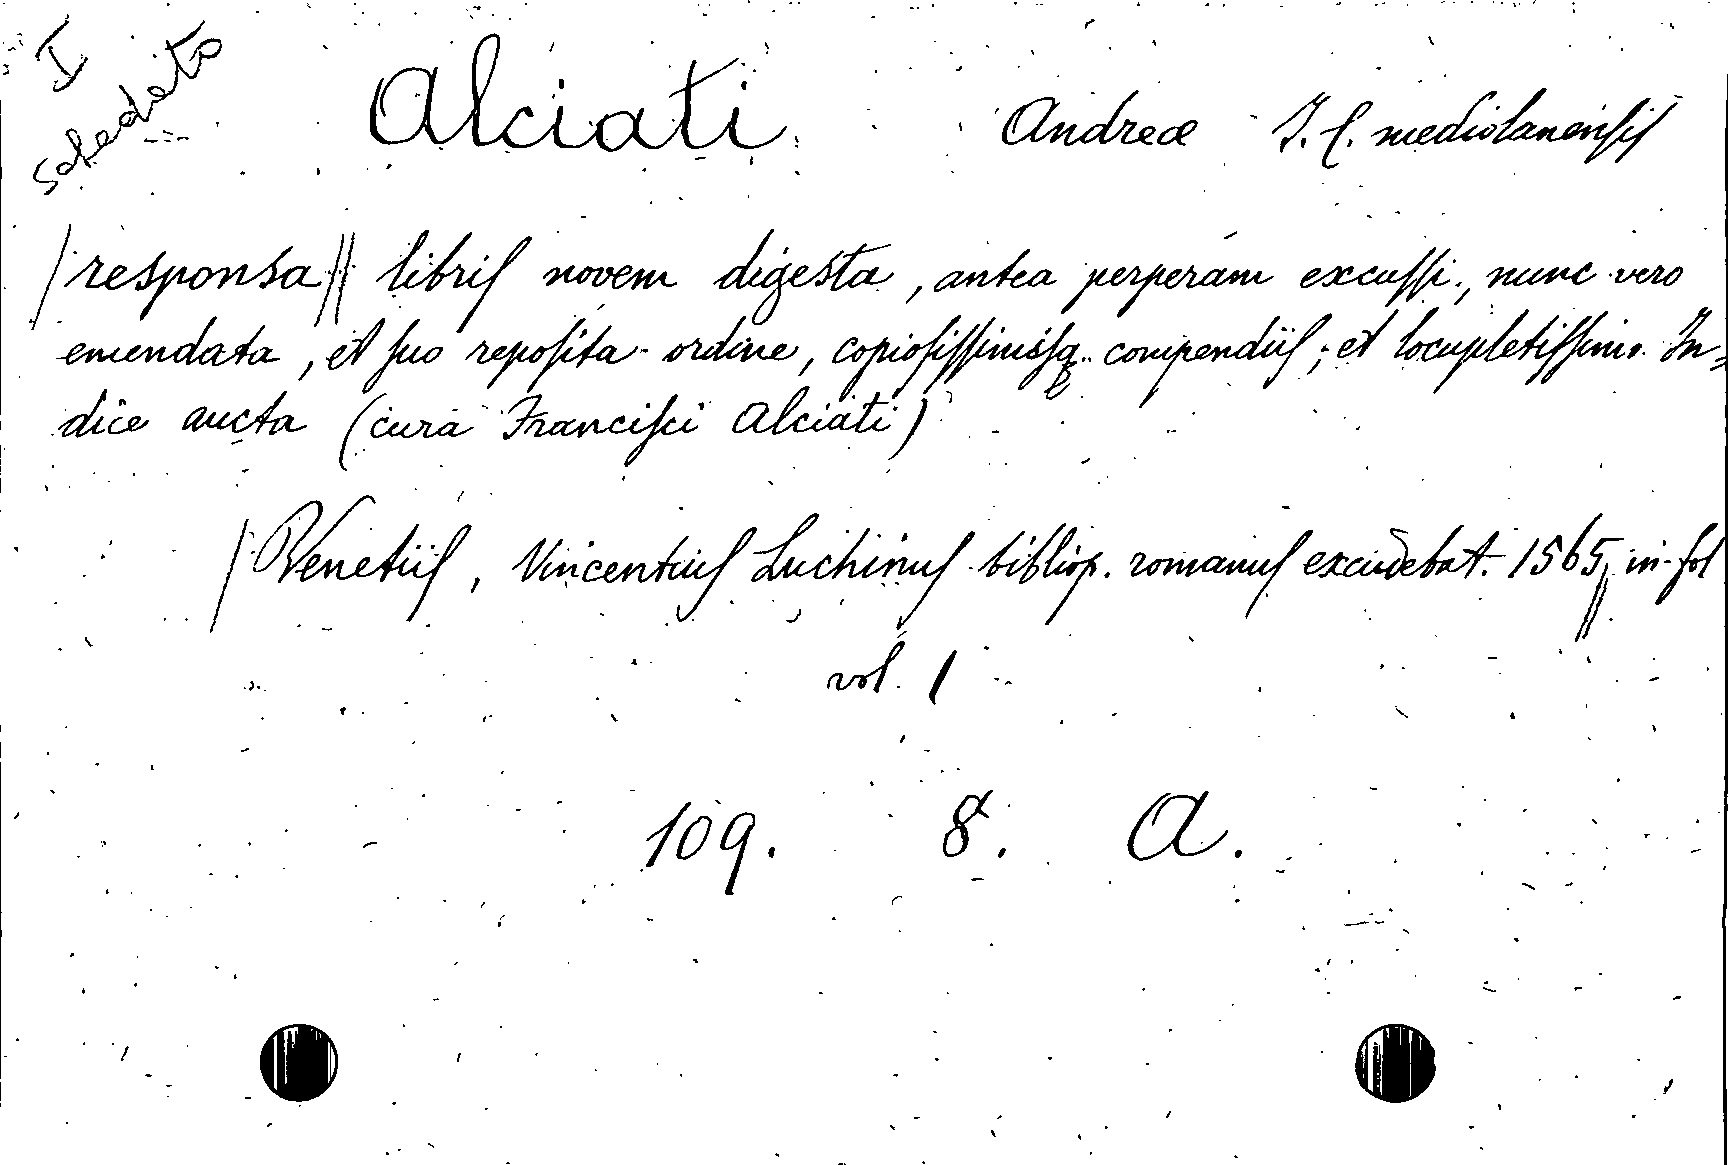 I
schedato
Alciati Andreæ J. C. mediolanensis
/responsa// libris novem digesta, antea perperam excussi., nunc vero
emendata, et suo reposita ordine, copiosissimisq. compendiis; et locupletissimo In=
dice aucta (cura Francisci Alciati)
/Venetiis, Vincentius Luchinus bibliop. romanus excudebat. 1565,// in-fol
vol. 1
109. 8. A.